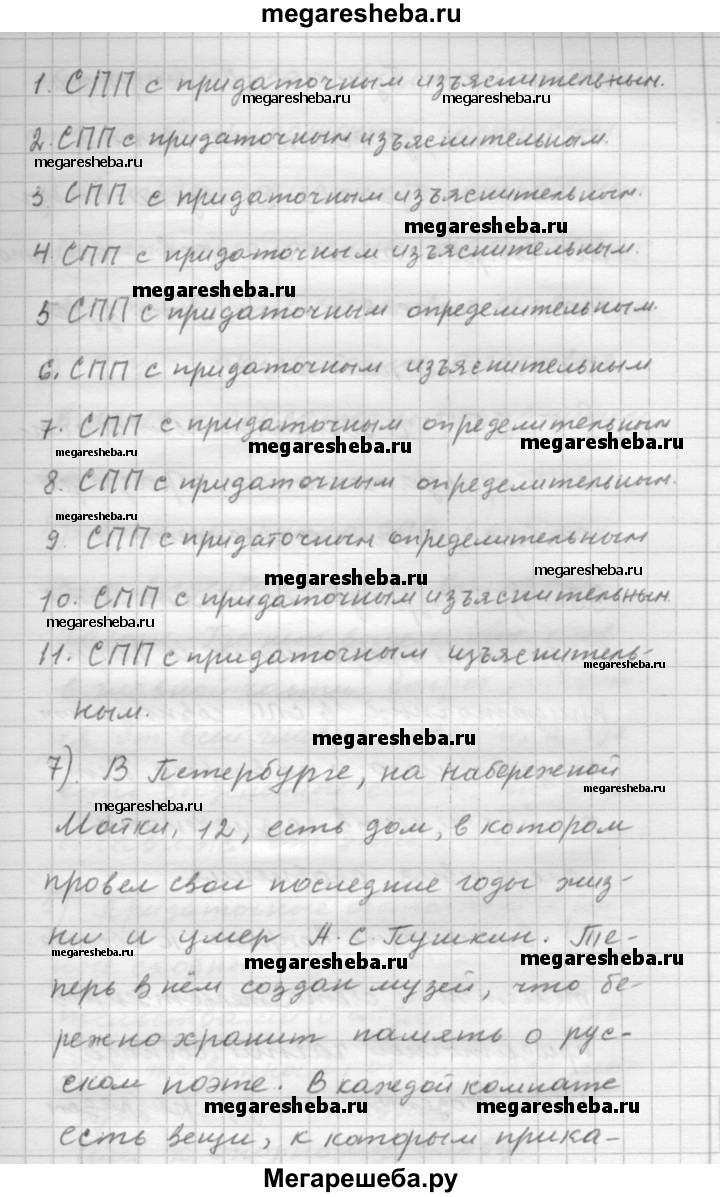 megaresheba.ru
1. СПП с придаточным изъяснительным.
megaresheba.ru megaresheba.ru
2. СПП с придаточным изъяснительным.
megaresheba.ru
3 СПП с придаточным изъяснительным.
megaresheba.ru
4. СПП с придаточным изъяснительным.
megaresheba.ru
5 СПП с придаточным определительным.
6. СПП с придаточным изъяснительным
7. СПП с придаточным определительным
megaresheba.ru megaresheba.ru megaresheba.ru
8. СПП с придаточным определительным.
megaresheba.ru
9. СПП с придаточным определительным
megaresheba.ru megaresheba.ru
10. СПП с придаточным изъяснительным.
megaresheba.ru
11. СПП с придаточным изъяснитель-
megaresheba.ru
ным.
megaresheba.ru
7). В Петербурге, на набережной
megaresheba.ru megaresheba.ru
Мойки, 12, есть дом, в котором
провел свои последние годы жиз-
ни и умер А. С. Пушкин. Те-
megaresheba.ru megaresheba.ru megaresheba.ru
перь в нём создан музей, что бе-
режно хранит память о рус-
ском поэте. В каждой комнате
megaresheba.ru megaresheba.ru
есть вещи, к которым прика-
Мегарешеба.ру